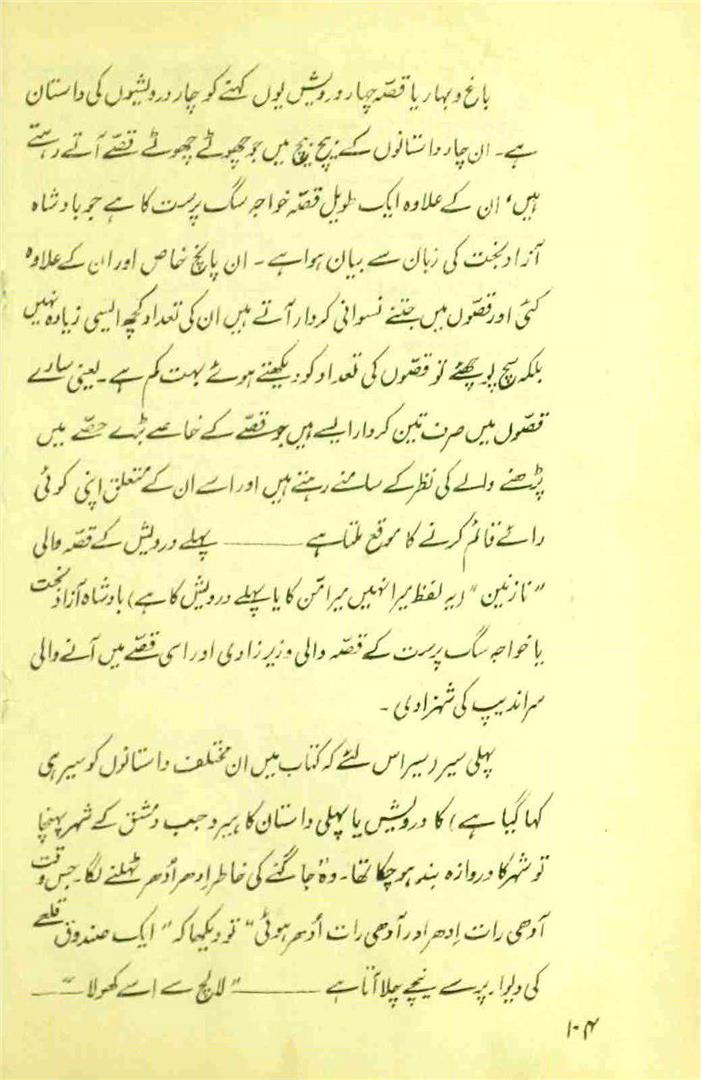 باغ و بہار یا قصّہ چہار درویش یوں کہنے کو چار درویشوں کی داستان
ہے۔ ان چار داستانوں کے بیچ بیچ میں جو چھوٹے چھوٹے قصّے آتے رہتے
ہیں، ان کے علاوہ ایک طویل قصّہ خواجہ سگ پرست کا ہے جو بادشاہ
آزاد بخت کی زبان سے بیان ہوا ہے۔ ان پانچ خاص اور ان کے علاوہ
کئی اور قصّوں میں جتنے نسوانی کردار آتے ہیں ان کی تعداد کچھ ایسی زیادہ نہیں
بلکہ سچ پوچھئے تو قصّوں کی تعداد کو دیکھتے ہوئے بہت کم ہے۔ یعنی سارے
قصّوں میں صرف تین کردار ایسے ہیں جو قصّے کے خاصے بڑے حصّے میں
پڑھنے والے کی نظر کے سامنے رہتے ہیں اور اسے ان کے متعلق اپنی کوئی
رائے قائم کرنے کا موقع ملتا ہے ——— پہلے درویش کے قصّہ والی
”نازنین“ (یہ لفظ میرا نہیں میر امّن کا یا پہلے درویش کا ہے) بادشاہ آزاد بخت
یا خواجہ سگ پرست کے قصّہ والی وزیر زادی اور اسی قصّے میں آنے والی
سراندیپ کی شہزادی۔
پہلی سیر (سیر اس لئے کہ کتاب میں ان مختلف داستانوں کو سیر ہی
کہا گیا ہے) کا درویش یا پہلی داستان کا ہیرو جب دمشق کے شہر پہنچا
تو شہر کا دروازہ بند ہو چکا تھا۔ وہ جاگنے کی خاطر اِدھر اُدھر ٹہلنے لگا۔ جس وقت
آدھی رات اِدھر اور آدھی رات اُدھر ہوئی“ تو دیکھا کہ ”ایک صندوق قلعے
کی دیوار پر سے نیچے چلا آتا ہے ——— ”لالچ سے اسے کھولا —“
۱۰۴